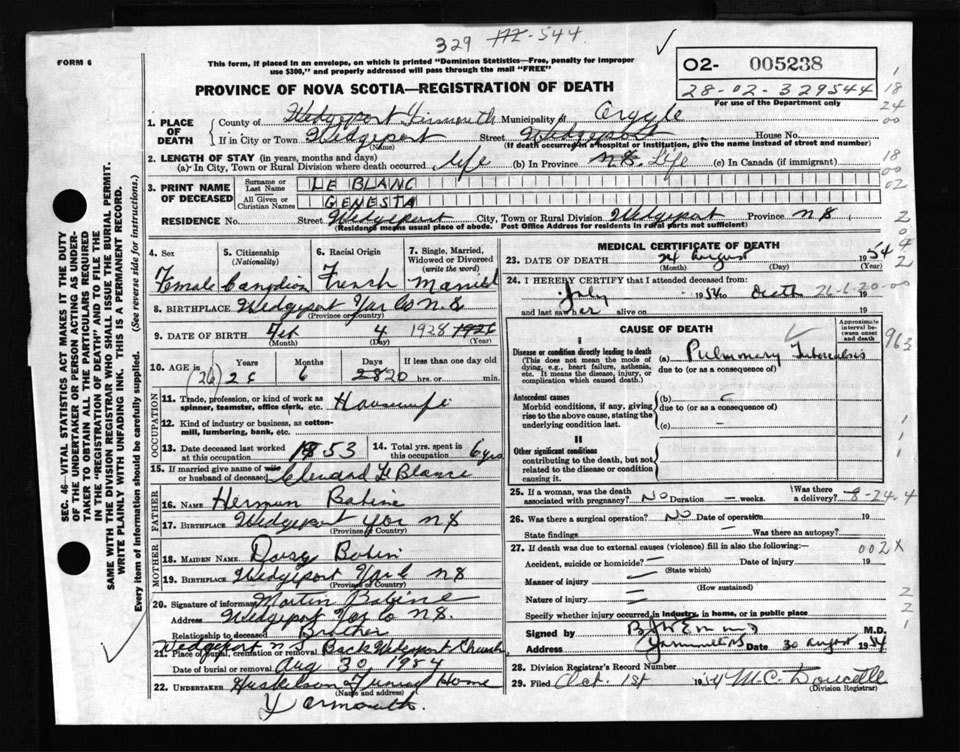 329 -544
FORM 6
This form, if placed in an envelope, on which is printed "Dominion Statistics—Free, penalty for improper
use $300," and properly addressed will pass through the mail "FREE"
O2- 005238
28-02-329544
For use of the Department only
PROVINCE OF NOVA SCOTIA—REGISTRATION OF DEATH
1. PLACE OF DEATH
County of Wedgeport Yarmouth Municipality of Argyle
If in City or Town Wedgeport Street Wedgeport House No.
(Name) (If death occurred in a hospital or institution, give the name instead of street and number)
2. LENGTH OF STAY (in years, months and days)
(a) In City, Town or Rural Division where death occurred life (b) In Province N.S. Life (c) In Canada (if immigrant)
3. PRINT NAME OF DECEASED
Surname or Last Name LE BLANC
All Given or Christian Names GENESTA
RESIDENCE No. Street Wedgeport City, Town or Rural Division Wedgeport Province N S
(Residence means usual place of abode. Post Office Address for residents in rural parts not sufficient)
4. Sex Female
5. Citizenship (Nationality) Canadian
6. Racial Origin French
7. Single, Married, Widowed or Divorced (write the word) Married
8. BIRTHPLACE Wedgeport Yar Co N S
(Province or Country)
9. DATE OF BIRTH Feb 4 1928 1926
(Month) (Day) (Year)
10. AGE in (26) 26 Years 6 Months 2820 Days If less than one day old
hrs. or min.
OCCUPATION
11. Trade, profession, or kind of work as spinner, teamster, office clerk, etc. Housewife
12. Kind of industry or business, as cotton-mill, lumbering, bank, etc.
13. Date deceased last worked at this occupation 1953
14. Total yrs. spent in this occupation 6 yrs
15. If married give name of wife or husband of deceased Le Blanc
FATHER
16. NAME Babine
17. BIRTHPLACE Wedgeport Yar N S
(Province or Country)
MOTHER
18. MAIDEN NAME
19. BIRTHPLACE Wedgeport Yar N S
(Province or Country)
20. Signature of informant Martin Babine
Address Wedgeport Yar Co N.S.
Relationship to deceased Brother
21. Place of burial, cremation or removal Wedgeport N S Back Wedgeport Church
Date of burial or removal Aug 30, 1954
22. UNDERTAKER Huskilson Funeral Home
(Name and address)
Yarmouth.
MEDICAL CERTIFICATE OF DEATH
23. DATE OF DEATH 24 August 1954
(Month) (Day) (Year)
24. I HEREBY CERTIFY that I attended deceased from:
July 1954 to Death
and last saw her alive on 19
CAUSE OF DEATH
Approximate interval between onset and death
I
Disease or condition directly leading to death
(This does not mean the mode of dying, e.g., heart failure, asthenia, etc. It means the disease, injury, or complication which caused death.)
(a) Pulmonary Tuberculosis
due to (or as a consequence of)
Antecedent causes
Morbid conditions, if any, giving rise to the above cause, stating the underlying condition last.
(b)
due to (or as a consequence of)
(c)
II
Other significant conditions
contributing to the death, but not related to the disease or condition causing it.
25. If a woman, was the death associated with pregnancy? NO Duration — weeks. Was there a delivery?
26. Was there a surgical operation? NO Date of operation 19
State findings Was there an autopsy?
27. If death was due to external causes (violence) fill in also the following:—
Accident, suicide or homicide? Date of injury 19
(State which)
Manner of injury
(How sustained)
Nature of injury
Specify whether injury occurred in industry, in home, or in public place
Signed by M.D.
Address Yarmouth NS Date 30 August 1954
28. Division Registrar's Record Number
29. Filed Oct. 1st 1954 M.C. Doucette
(Division Registrar)
SEC. 46—VITAL STATISTICS ACT MAKES IT THE DUTY
OF THE UNDERTAKER OR PERSON ACTING AS UNDER-
TAKER TO OBTAIN ALL THE PARTICULARS REQUIRED
IN THE "REGISTRATION OF DEATH" AND TO FILE THE
SAME WITH THE DIVISION REGISTRAR WHO SHALL ISSUE THE BURIAL PERMIT.
WRITE PLAINLY WITH UNFADING INK. THIS IS A PERMANENT RECORD.
Every item of information should be carefully supplied. (See reverse side for instructions.)
963
002X